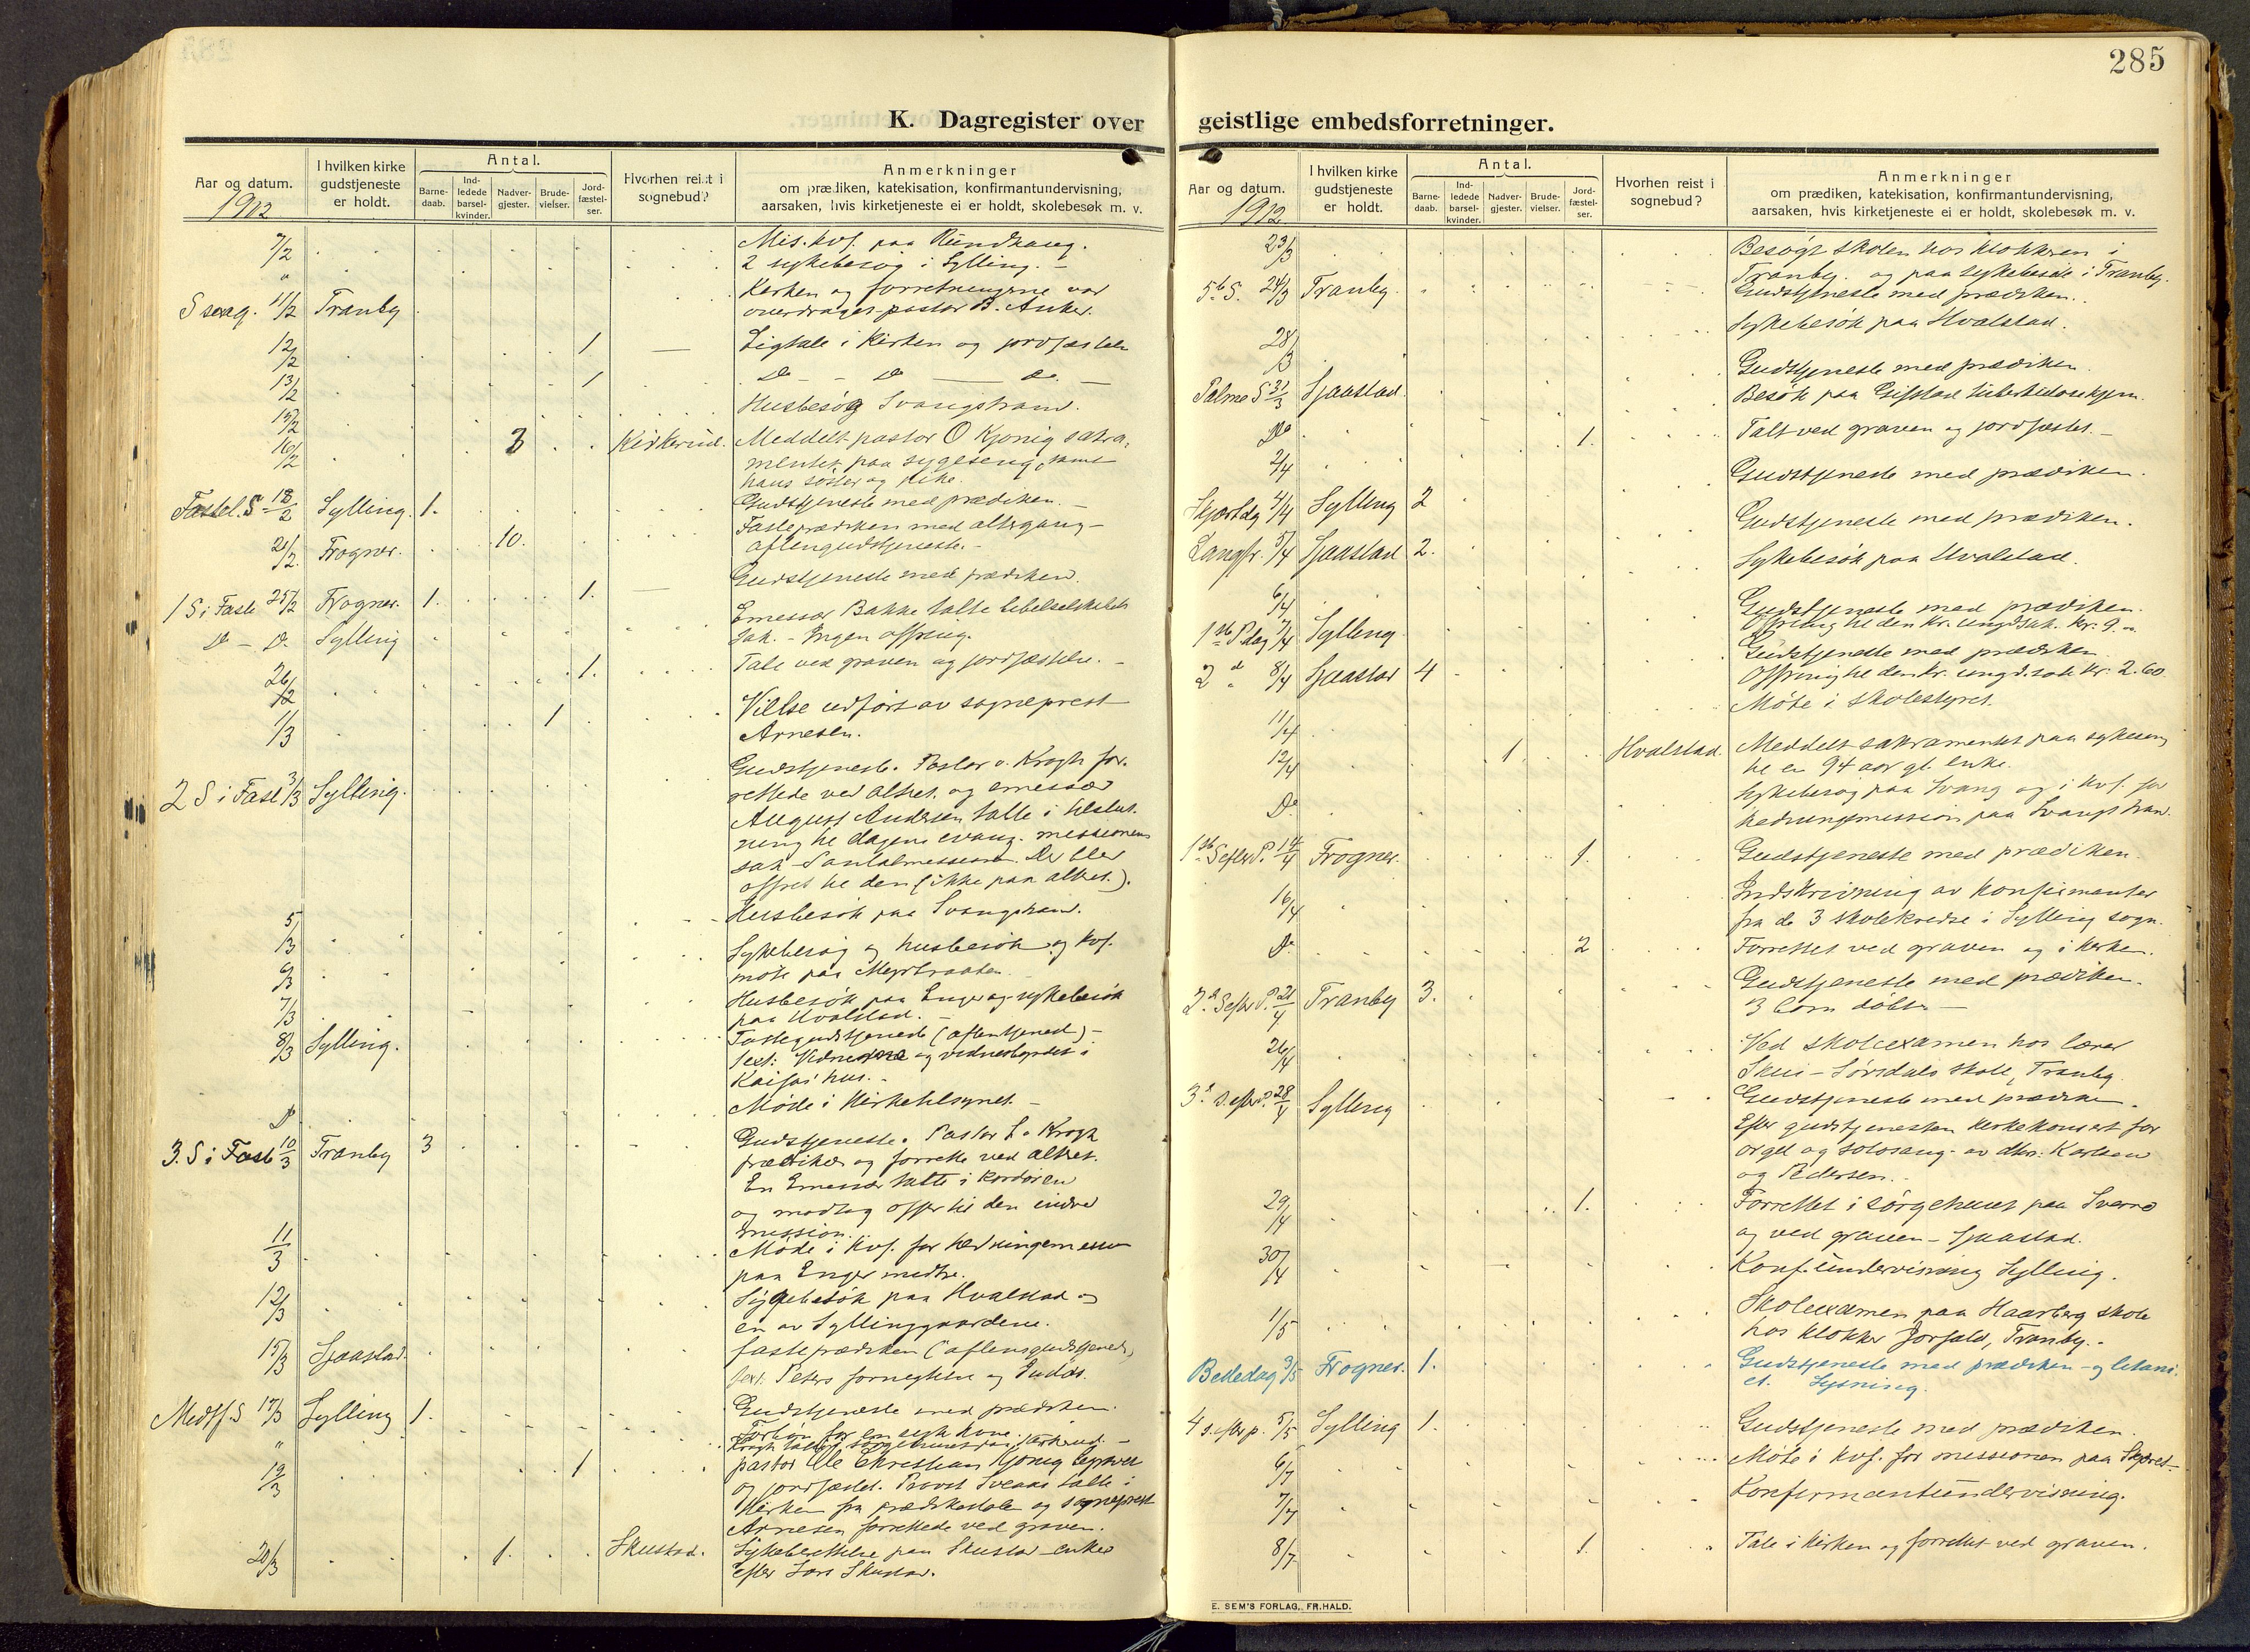 285
K. Dagregister over geistlige embedsforretninger.
Aar og datum.
1912
I hvilken kirke gudstjeneste er holdt.
Antal.
Barne-daab.
Ind-ledede barsel-kvinder.
Nadver-gjester.
Brude-vielser.
Jord-fæstel-ser.
Hvorhen reist i sognebud?
Anmerkninger
om prædiken, katekisation, konfirmantundervisning,
aarsaken, hvis kirketjeneste ei er holdt, skolebesøk m. v.
7/2 Mis. kvf. paa
" 2 sykebesøg i Sylling. -
S sexag. 11/2 Tranby Kirken og forretningerne var
overdraget pastor B. Anker.
12/2 1 — Ligtale i kirken og jordfæstelse
13/2 1 Do - - Do — Do. —
15/2 Husbesøg Svangstrand.
16/2 3 Kirkerud. Meddelt pastor O Kjønig sakra-
mentet paa sygeseng, samt
hans søster og pike.
Fastel. S 18/2 Sylling. 1. Gudstjeneste med prædiken. -
21/2 Frogner. 10. Fasteprædiken med altergang -
aftengudstjeneste. -
1 S i Faste 25/2 Frogner. 1. 1. — Gudstjeneste med prædiken.
D. - D. Sylling Emissær Bakke talte bibelselskabets
sak. - Ingen offring.
26/2 1. Tale ved graven og jordfæstelse. -
1/3 1 Vielse udført av sogneprest
Arnesen.
2 S i Fast 3/3 Sylling. Gudstjeneste. Pastor v. Krogh for-
rettede ved altret. og emissær
August Andersen talte i tilslut-
ning til dagens evang. missionens
sak - Santalmissionen. Der blev
offret til den (ikke paa altret.).
5/3 Husbesøk paa Svangstrand.
6/3 Sykebesøg og husbesøk og kvf.
møte paa
7/3 Husbesøk paa Enger og sykebesøk
paa Hvalstad. -
8/3 Sylling. Fastegudstjeneste (aftentjeneste) -
Text: og vidnesbyrdet i
Kaifas' hus. -
D Møde i kirketilsynet. -
3. S i Fast 10/3 Tranby 3 Gudstjeneste. Pastor v. Krogh
prædiket og forrettet ved altret.
En Emissær talte i kordøren
og modtog offer til den indre
mission.
11/3 Møde i kvf. for hedningemission
paa Enger nedtre.
12/3 Sygebesøk paa Hvalstad og
en av Syllinggaardene.
15/3 Sjaastad. fasteprædiken (aftengudstjeneste,
text. Peters fornegtelse og Judas.
Midtf. S 17/3 Sylling 1. Gudstjeneste med prædiken.
" Forbøn for en syk kone.
19/3 1 pastor Ole Christian Kjønig begravet
og jordfæstet. Provst Sveaas talte i
kirken fra prædikestolen og sogneprest
Arnesen forrettede ved graven.
20/3 1. Skustad. Sykeberettelse paa Skustad - enke
efter Lars Skustad.
Aar og datum.
1912
I hvilken kirke gudstjeneste er holdt.
Antal.
Barne-daab.
Ind-ledede barsel-kvinder.
Nadver-gjester.
Brude-vielser.
Jord-fæstel-ser.
Hvorhen reist i sognebud?
Anmerkninger
om prædiken, katekisation, konfirmantundervisning,
aarsaken, hvis kirketjeneste ei er holdt, skolebesøk m. v.
23/3 Besøgt skolen hos klokkeren i
Tranby. og paa sykebesøk i Tranby.
5te S. 24/3 Tranby. Gudstjeneste med prædiken.
28/3 Sykebesøk paa Hvalstad.
Palme S 31/3 Sjaastad. Gudstjeneste med prædiken.
Do Besøk paa Gifstad tuberkulosehjem.
2/4 1. Talt ved graven og jordfæstet. -
Skjærtdg 4/4 Sylling 2 Gudstjeneste med prædiken.
Langfr. 5/4 Sjaastad 2. Gudstjeneste med prædiken.
6/4 Sykebesøk paa Hvalstad.
1ste Pdag 7/4 Sylling Gudstjeneste med prædiken.
Offring til den kr. ungd.sak. kr. 9.-
2 d " 8/4 Sjaastad 4 Gudstjeneste med prædiken
Offring til den kr. ungd.sak kr. 2.60
11/4 Møte i skolestyret.
12/4 1 Hvalstad Meddelt sakramentet paa sykeseng
til en 94 aar gl. enke.
Do Sykebesøg paa Svang og i kvf. for
hedningemission paa Svangstrand.
1ste S efter P. 14/4 Frogner. 1. Gudstjeneste med prædiken.
16/4 Indskrivning av konfirmanter
fra de 3 skolekredse i Sylling sogn.
Do 2 Forrettet ved graven og i kirken.
2d S efter P. 21/4 Tranby 3. Gudstjeneste med prædiken.
3 børn døbt. —
26/4 Ved skoleexamen hos lærer
Skui - Sørsdals skole, Tranby.
3d S. efter P. 28/4 Sylling Gudstjeneste med prædiken.
Efter gudstjenesten kirkekonsert for
orgel og solosang. av dhrr. Karlsen
og Pedersen.
29/4 1. Forrettet i sørgehuset paa
og ved graven - Sjaastad.
30/4 Konf.undervisning Sylling.
1/5 Skoleexamen paa Haarberg skole
hos klokker Tranby. -
Bededag 3/5 Frogner. 1. Gudstjeneste med prædiken - og litani.
et. Lysning.
4 S. efter p. 5/5 Sylling 1. Gudstjeneste med prædiken.
6/7 Møte i kvf. for missionen paa
7/7 Konfirmantundervisning.
8/7 1. Tale i kirken og forrettet ved graven.
E. SEM'S FORLAG, FR.HALD.